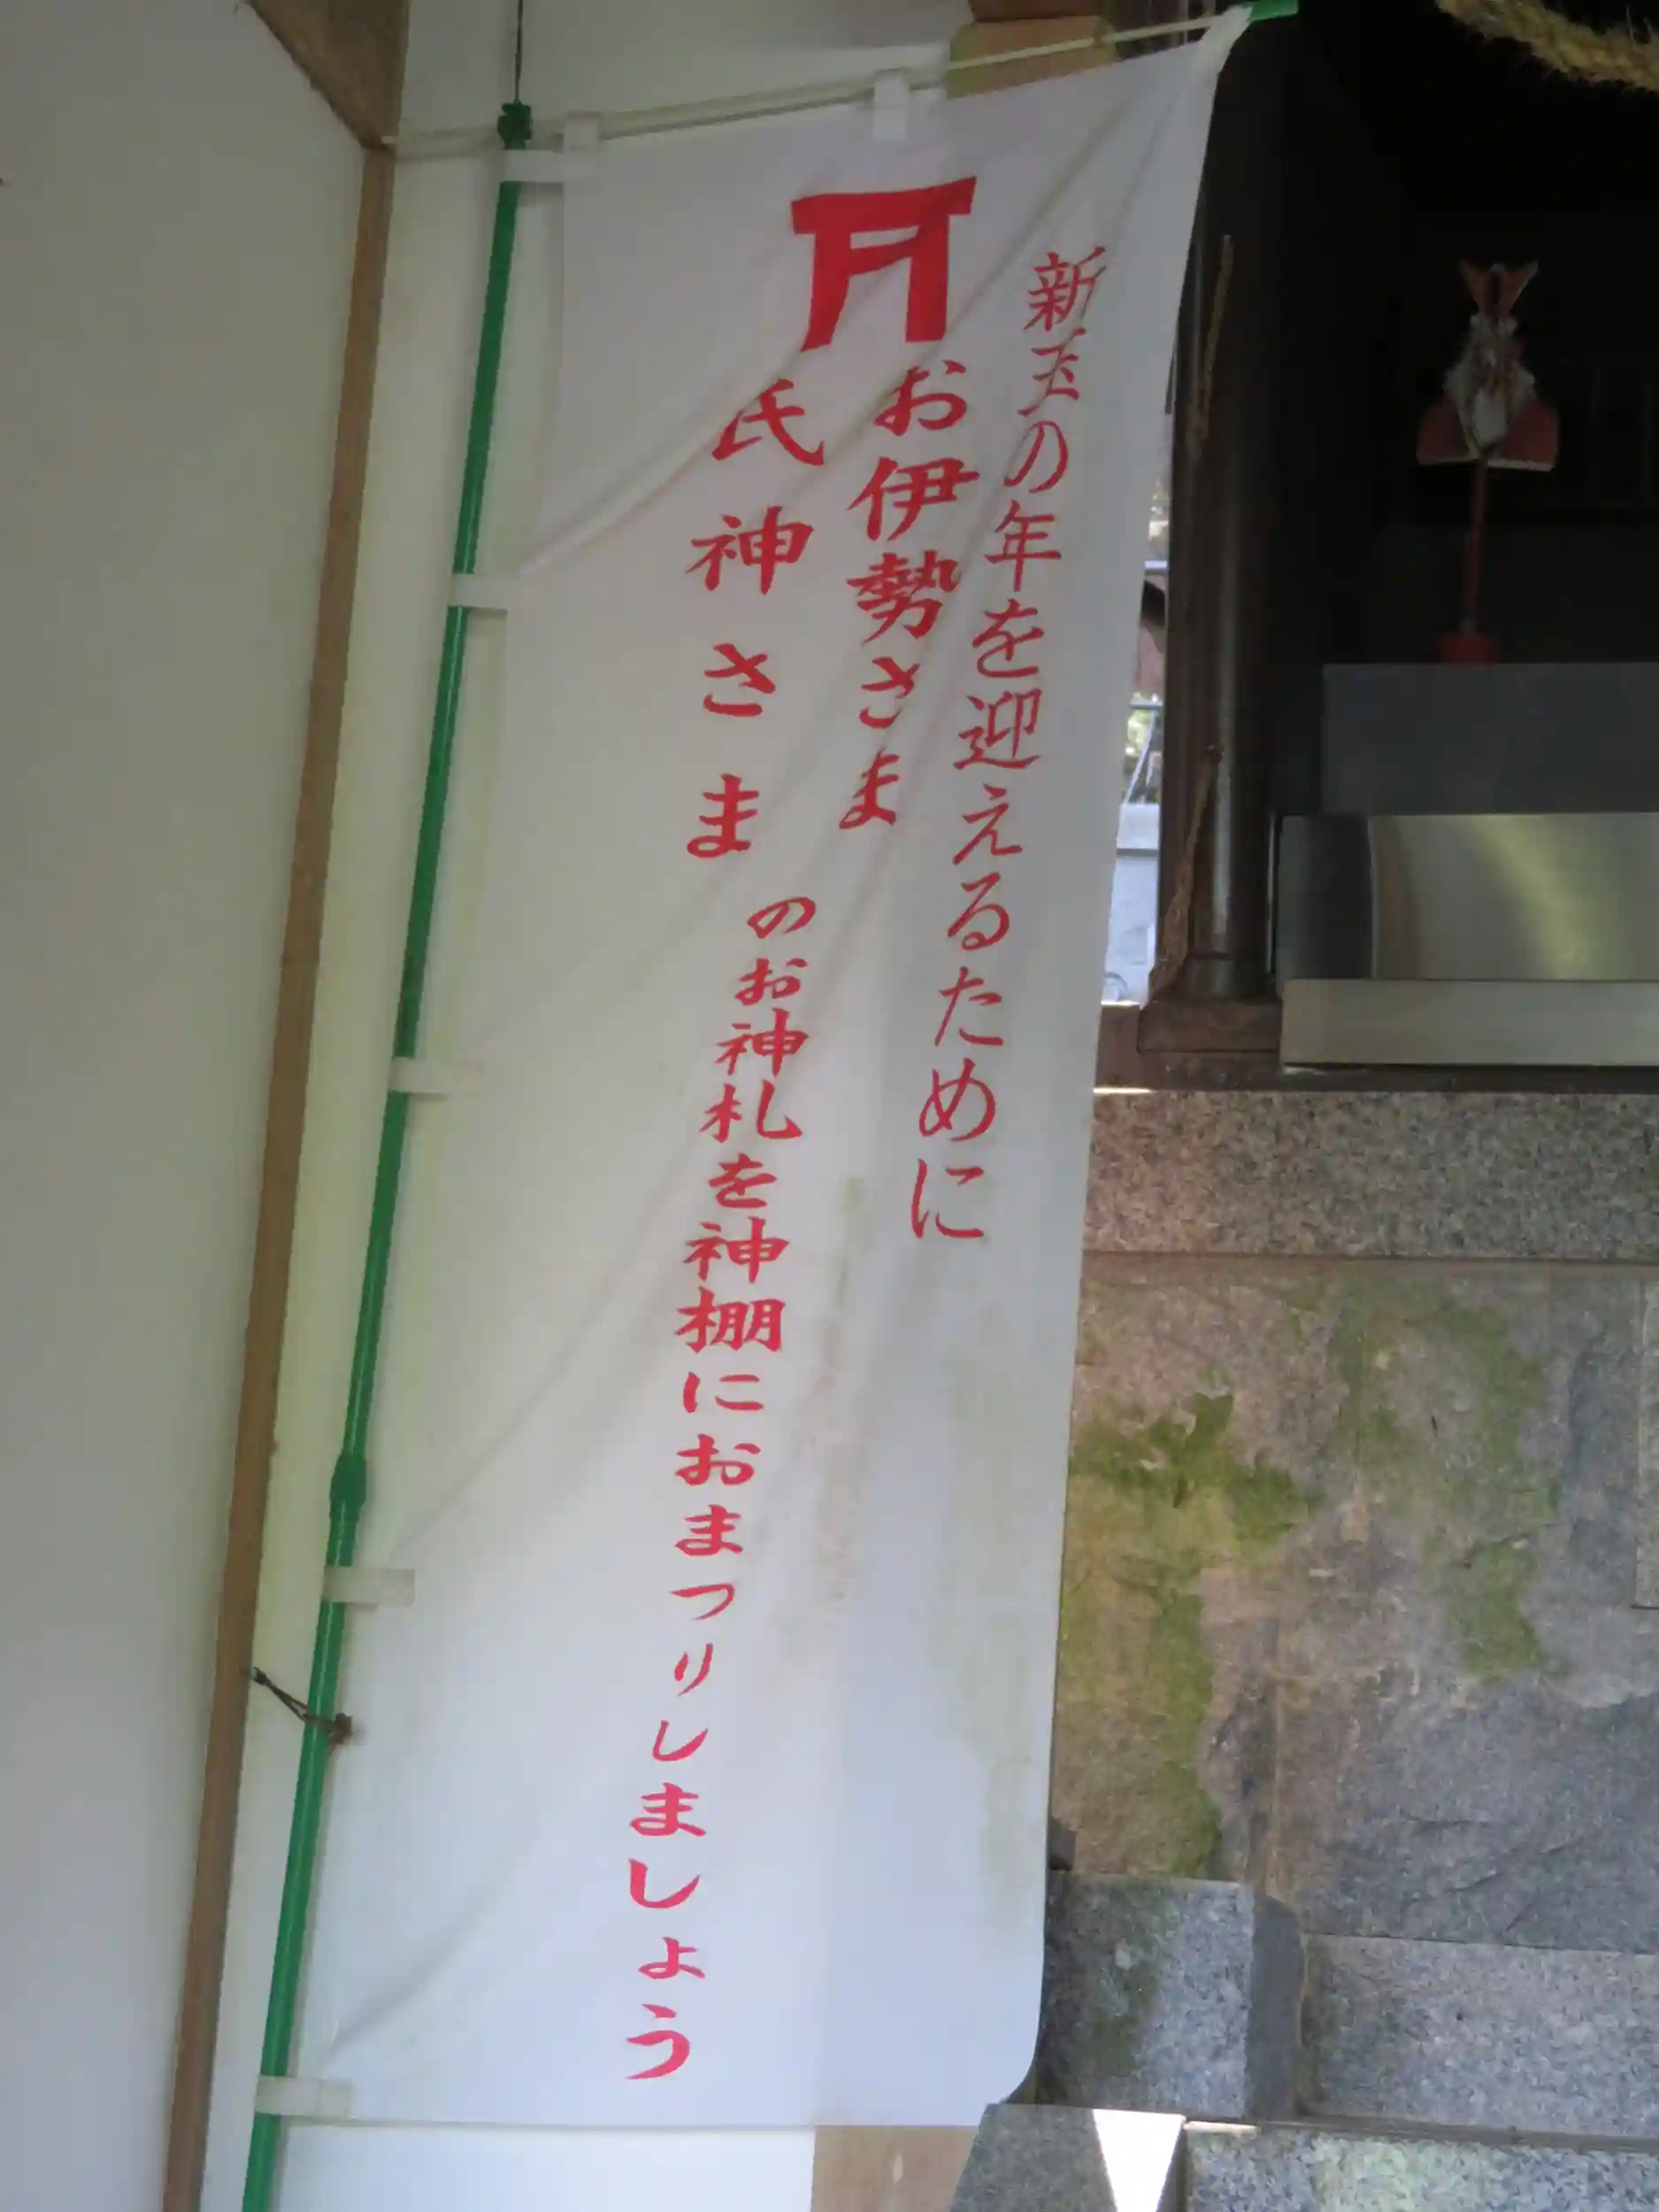 新玉の年を迎えるために
お伊勢さま
氏神さま
のお神札を神棚におまつりしましょう